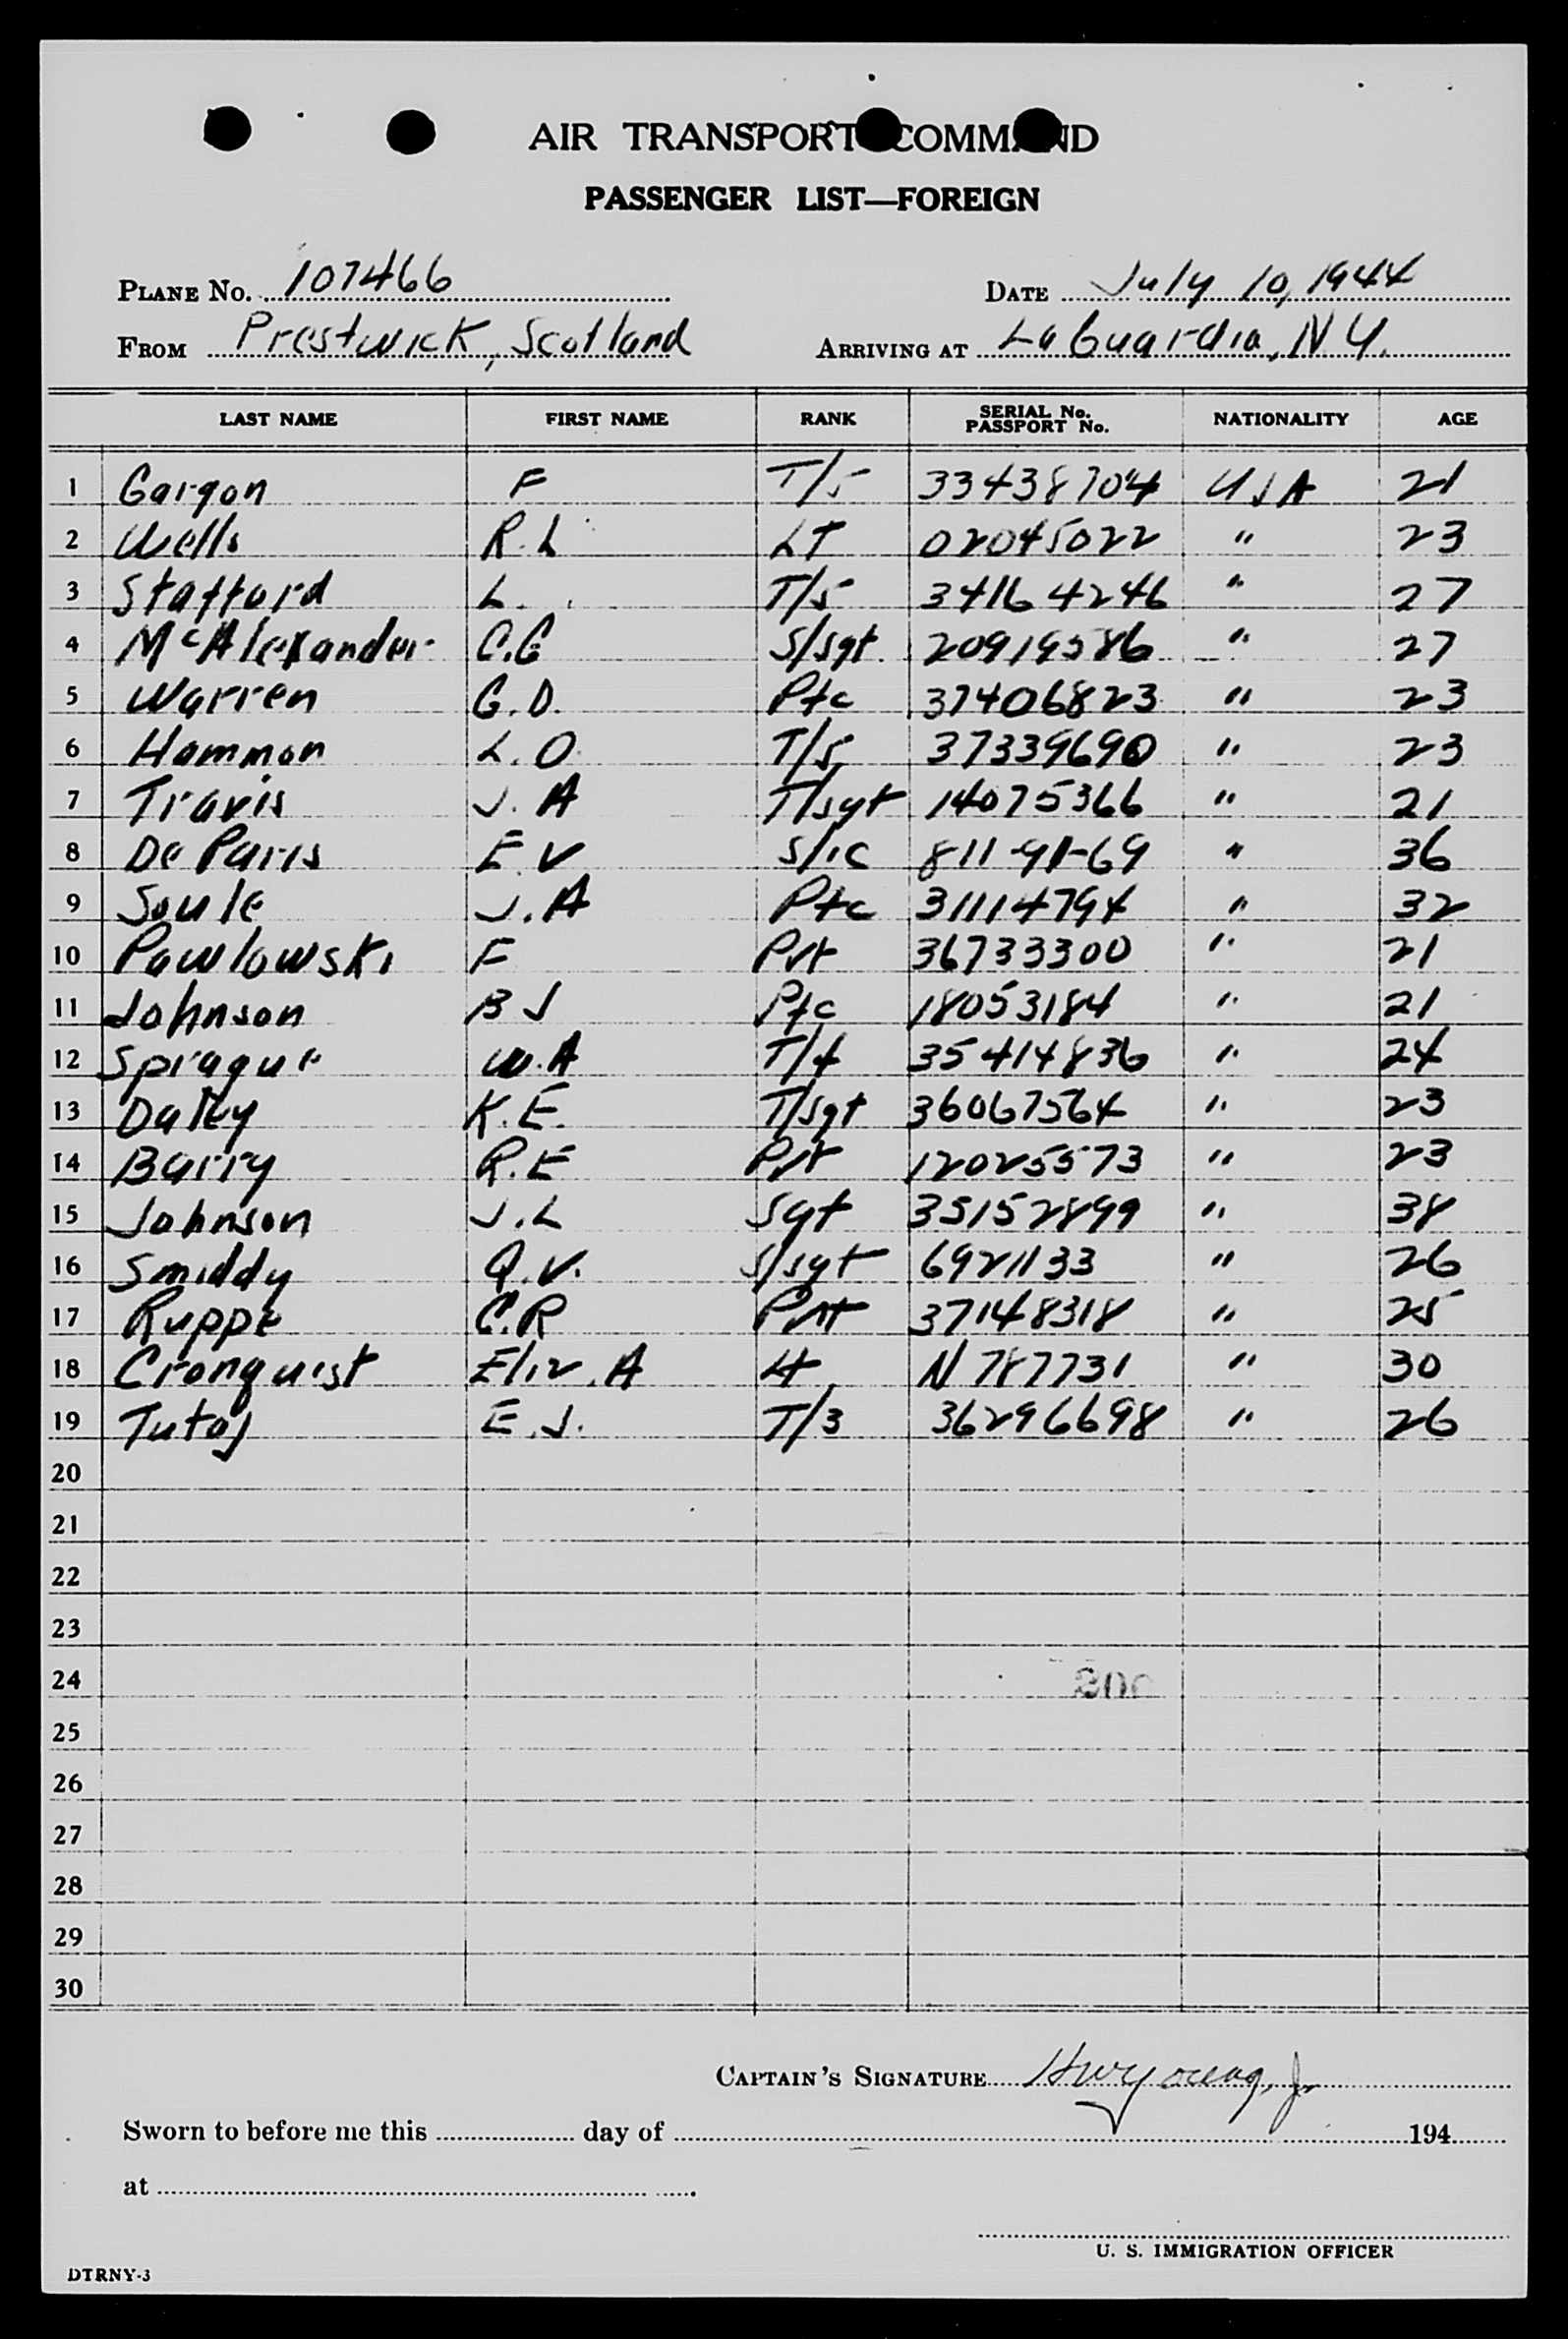 AIR TRANSPORT COMMAND
PASSENGER LIST—FOREIGN
PLANE No. 107466 DATE July 10, 1944
FROM Prestwick, Scotland ARRIVING AT LaGuardia, N.Y.
LAST NAME FIRST NAME RANK SERIAL No. PASSPORT No. NATIONALITY AGE
1 Gargon F T/5 33438704 USA 21
2 Wells R.L LT 02045022 " 23
3 Stafford L. T/5 34164246 " 27
4 McAlexander C.G S/sgt. 20919586 " 27
5 Warren G.D. Pfc 37406823 " 23
6 Hammon L.O. T/5 37339690 " 23
7 Travis J.A T/sgt 14075366 " 21
8 De Paris E.V S/1c 811-91-69 " 36
9 Soule J.A Pfc 31114794 " 32
10 Pawlowski F Pvt 36733300 " 21
11 Johnson B J Pfc 18053184 " 21
12 Sprague W.A T/4 35414836 " 24
13 Daley K.E. T/sgt 36067564 " 23
14 Barry R.E Pvt 12025573 " 23
15 Johnson J.L Sgt 35152899 " 38
16 Smiddy Q.V. S/sgt 6921133 " 26
17 Ruppe C.R Pvt 37148318 " 25
18 Cronquist Eliz. A Lt N 787731 " 30
19 Tutaj E.J. T/3 36296698 " 26
20
21
22
23
24
25
26
27
28
29
30
CAPTAIN'S SIGNATURE HWYoung, Jr.
Sworn to before me this day of 194
at
U. S. IMMIGRATION OFFICER
DTRNY-3